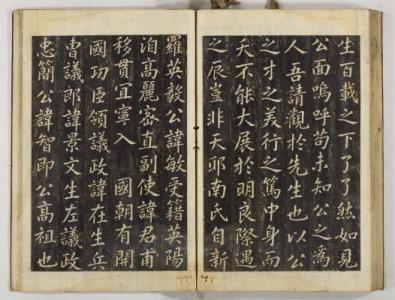 生百載之下了了然如見
公面嗚呼苟未知公之為
人吾請觀於先生也以公
之才之美行之篤中身而
夭不能大展於明良際遇
之辰豈非天邪南氏自新
羅英毅公諱敏受籍英陽
洎高麗密直副使諱君甫
移貫宜寧入　國朝有開
國功臣領議政諱在生兵
曹議郎諱景文生左議政
忠簡公諱智即公高祖也